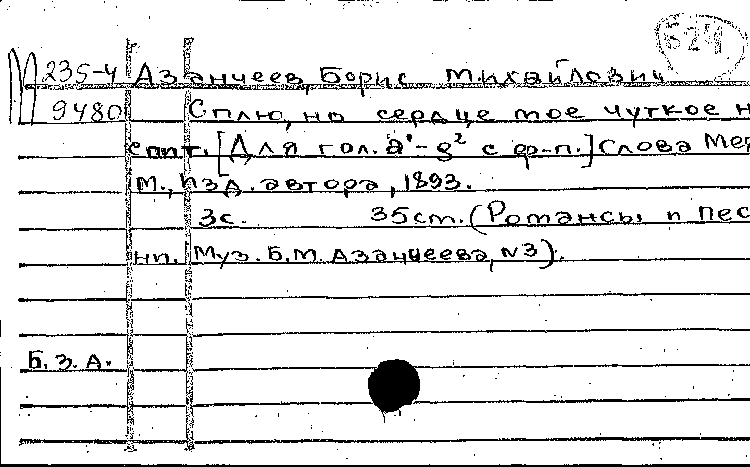 524
М 235-4 Азанчеев, Борис Михайлович
9480 Сплю, но сердце мое чуткое н
спит. [Для гол. a¹-g² с ф-п.] Слова Мер
М., изд. автора, 1893.
3с. 35 cm. (Романсы и пес
ни. Муз. Б.М. Азанчеева, N3).
Б.З.А.